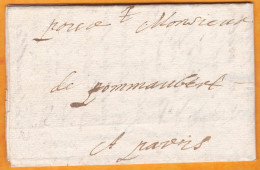 pour Monsieur
de pommaubert
A paris